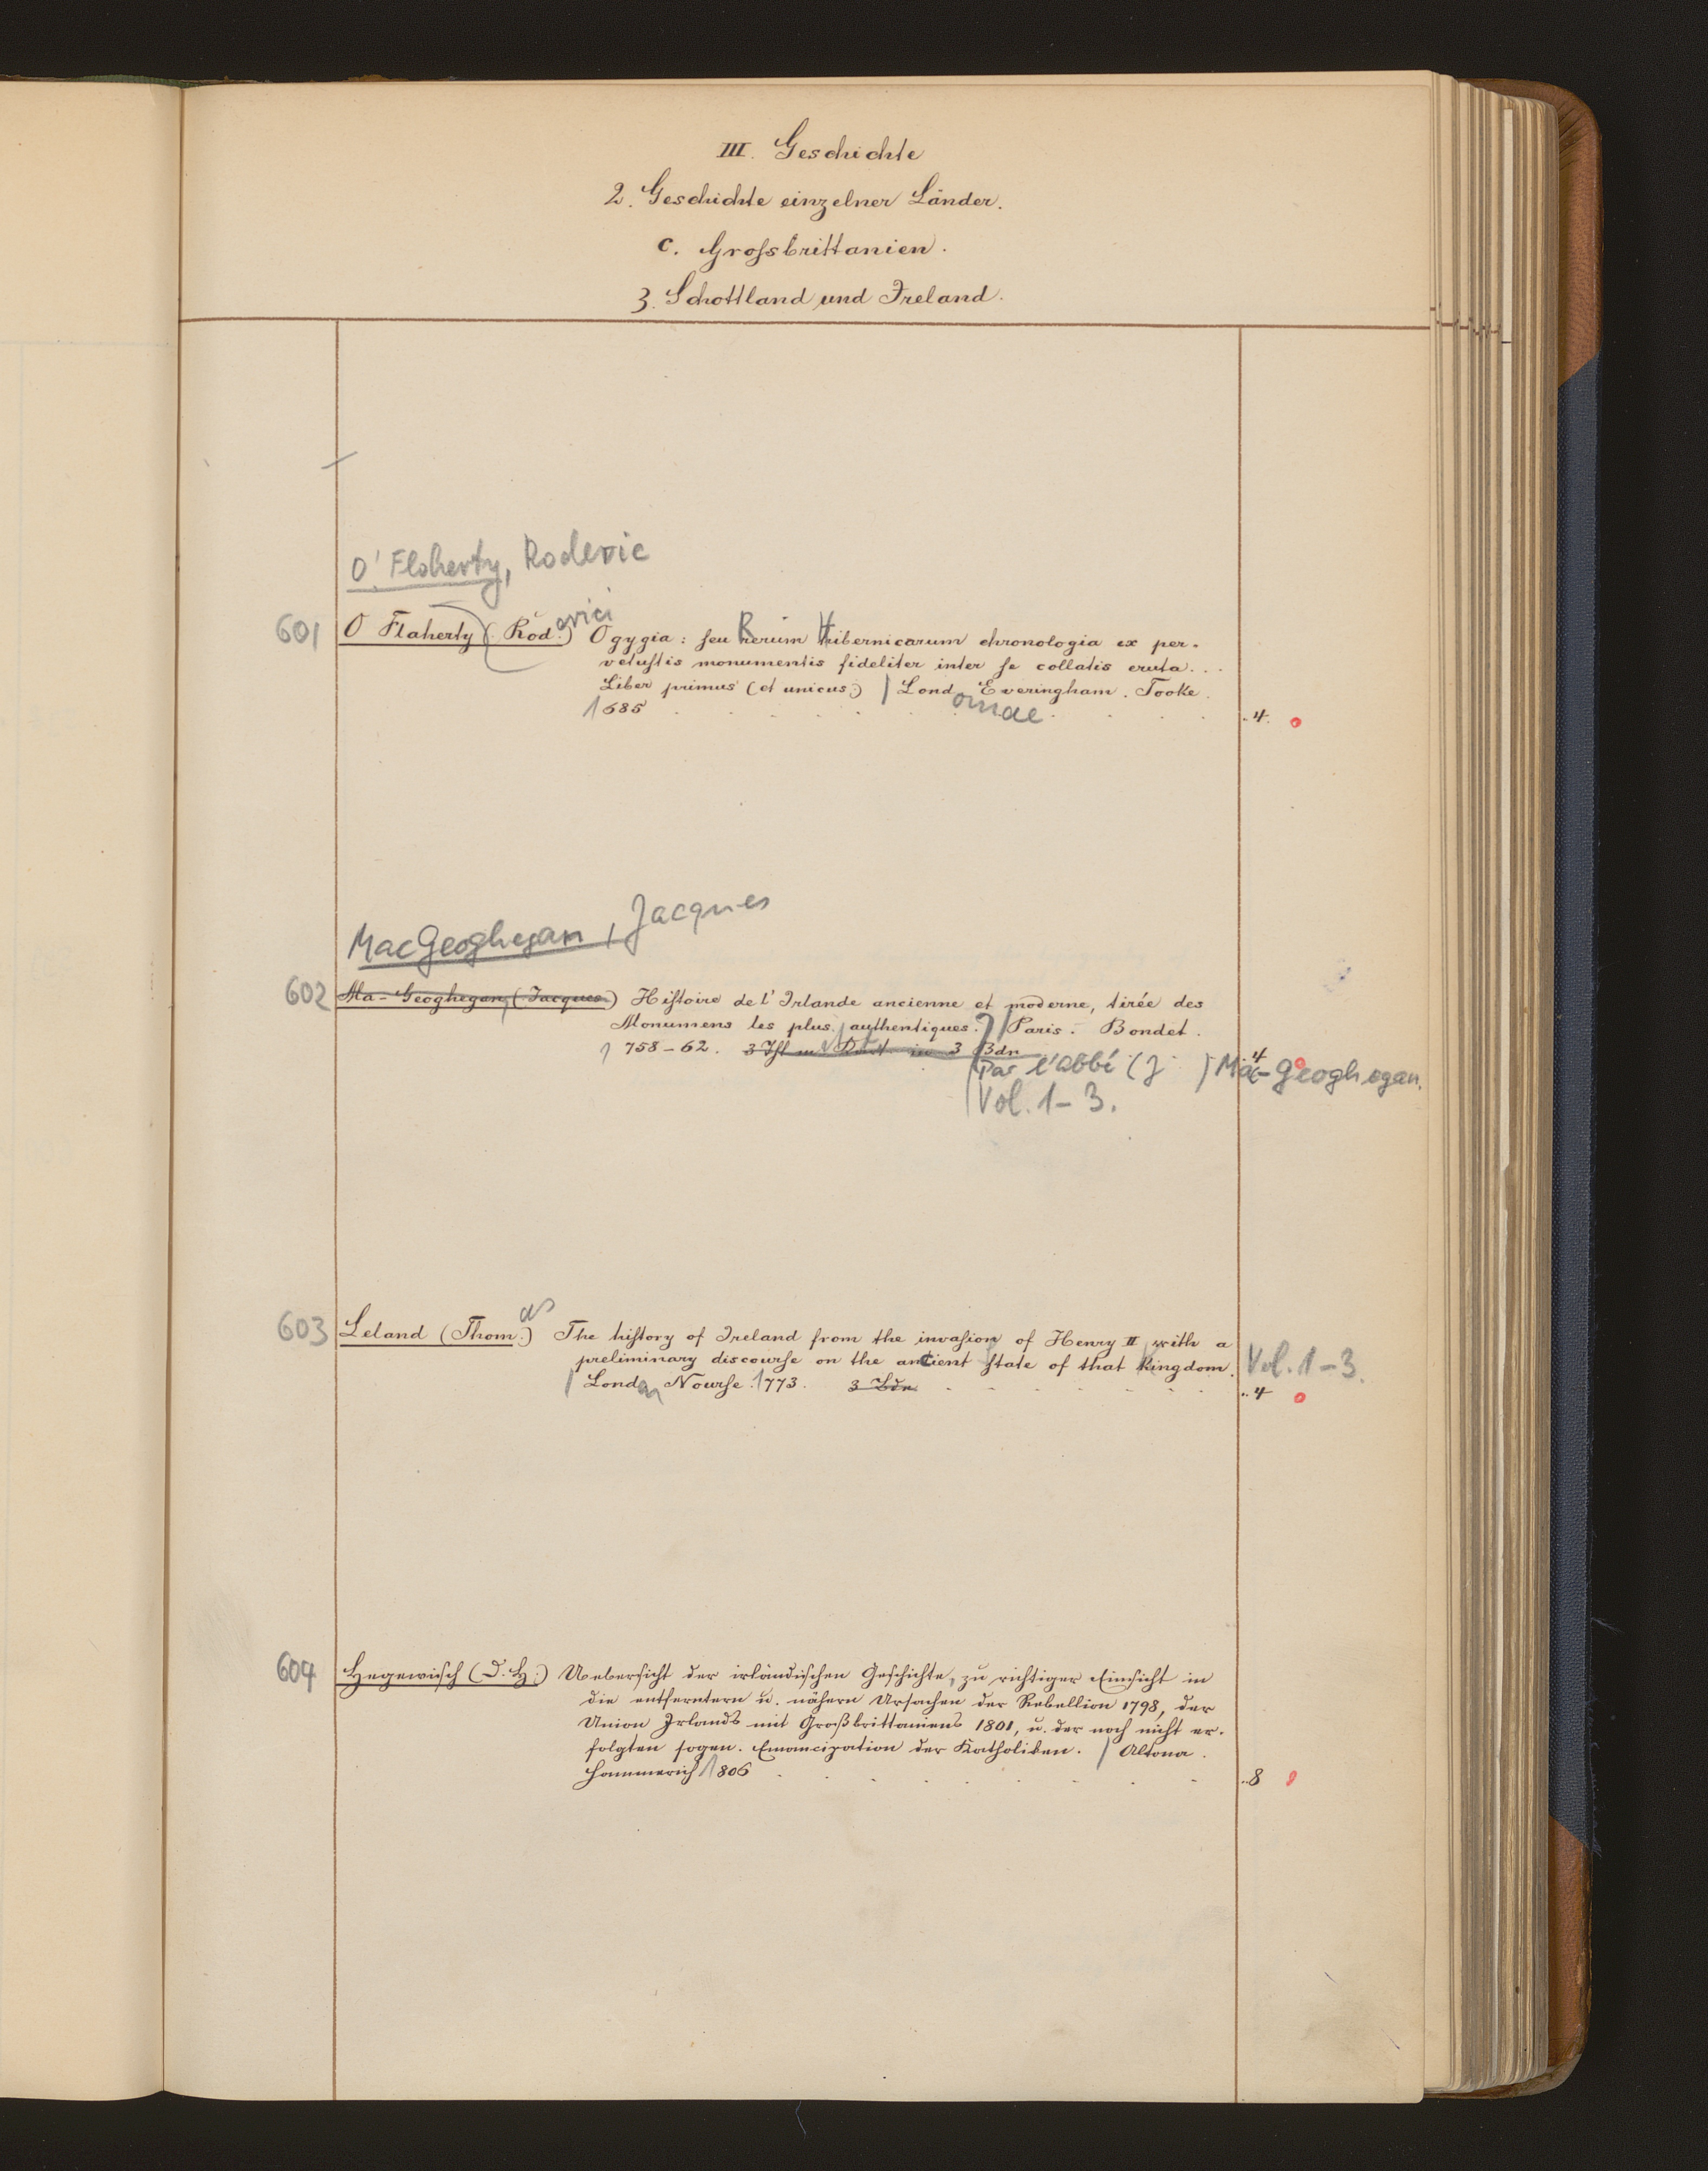 III. Geschichte
2. Geschichte einzelner Länder.
c. Grossbrittanien.
3. Schottland und Ireland.
O'Flaherty, Roderic
601 O Flaherty (Rod.) erici Ogygia: seu Rerum Hibernicarum chronologia ex per-
vetustis monumentis fideliter inter se collatis eruta...
Liber primus (et unicus.) | Lond. Everingham. Tooke.
1685 omae . . 4.
MacGeoghegan, Jacques
602 Ma-Geoghegan, (Jacques) Histoire de l'Irlande ancienne et moderne, tirée des
Monumens les plus authentiques. | Paris. Bondet.
1758-62. in 3 Bdn . . 4
Par l'abbé (J ) Mac-Geoghegan.
Vol. 1-3.
603 Leland (Thom.) as The history of Ireland from the invasion of Henry II with a
preliminary discourse on the ancient state of that Kingdom. Vol. 1-3.
| London Nourse. 1773. 3 Bdn. . . 4
604 Hegewisch (D. H.) Uebersicht der irländischen Geschichte, zu richtiger Einsicht in
die entferntern u. nähern Ursachen der Rebellion 1798, der
Union Irlands mit Großbrittaniens 1801, u. der noch nicht er-
folgten sogen. Emancipation der Katholiken. | Altona.
Hammerich 1806 . . 8